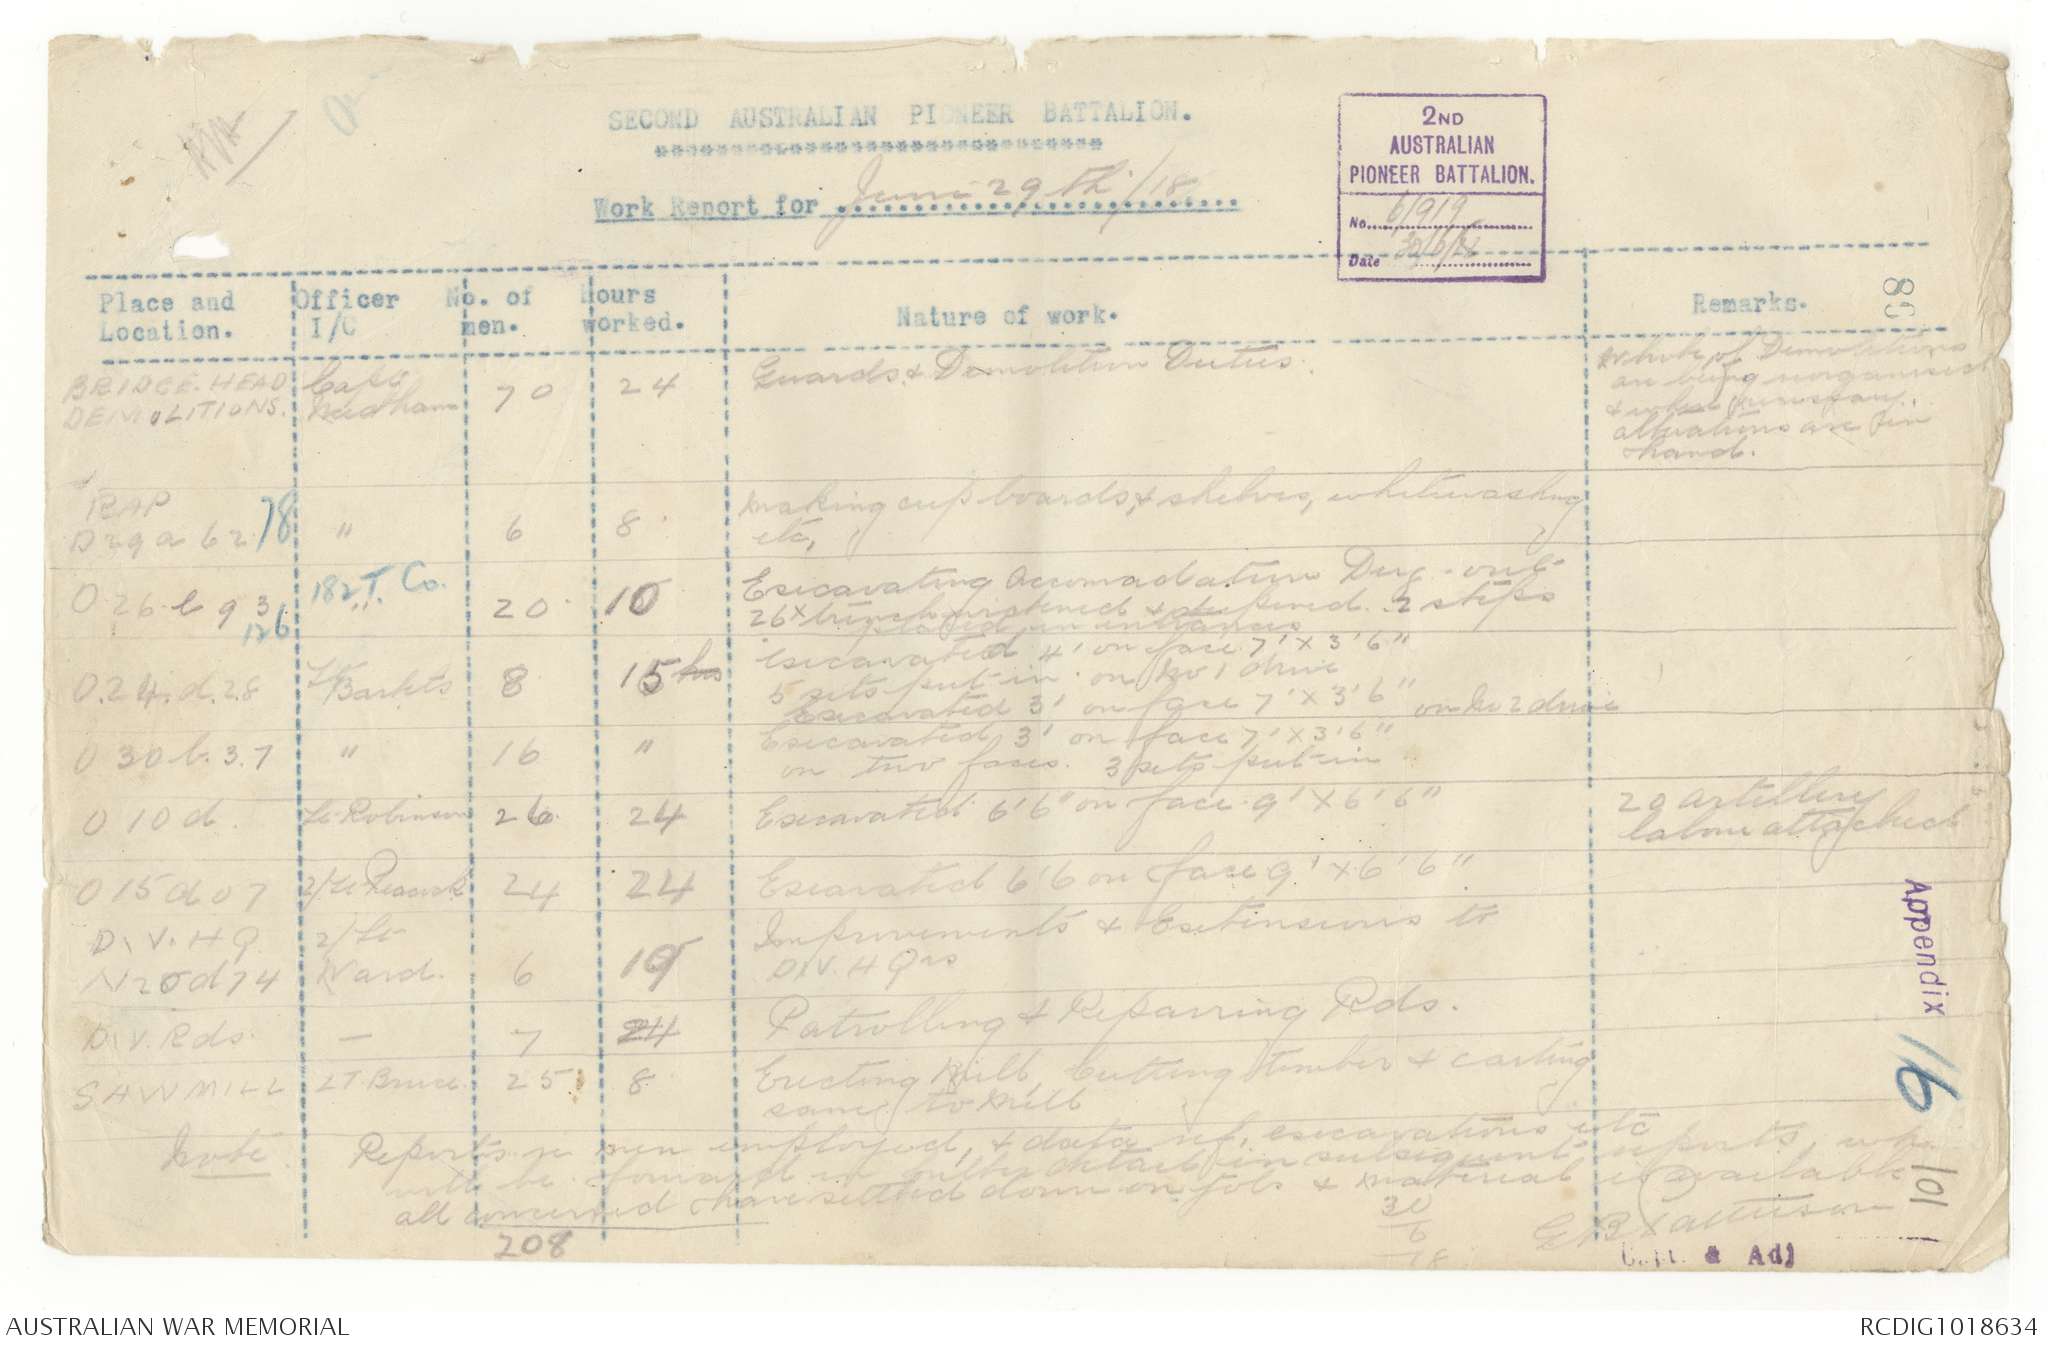 SECOND AUSTRALIAN PIONEER BATTALION.
Work Report for June 29th/18
2ND
AUSTRALIAN
PIONEER BATTALION.
No. 6/919
Date 30/6/18
Place and Location. Officer I/C No. of men. Hours worked. Nature of work. Remarks.
86
BRIDGE HEAD DEMOLITIONS. Capt Needham 70 24 Guards & Demolition Duties.
Whole of Demolitions
are being reorganised
& where necessary
alterations are in
hand.
RAP
D29a 62.78 " 6 8 Making cupboards, & shelves, whitewashing
etc,
O.26.b 93 126 182 T. Co. " 20 10 Excavating Accomadation Dug-out
26x trench widened & deepened. 2 steps
placed in entrances
O.24.d.28 Lt Barkets 8 15 hrs Excavated 4' on face 7' x 3'6"
5 sets put in on No 1 drive
Excavated 3' on face 7' x 3'6" on No 2 drive
O 30 b.3.7 " 16 " Excavated 3' on face 7' x 3'6"
on two faces. 3 sets put in
O 10 d. Lt Robinson 26 24 Excavated 6'6" on face 9' x 6'6"
20 Artillery
labour attached
O 15 d 07 2/Lt Peacock 24 24 Excavated 6'6 on face 9' x 6'6"
DIV. HQ. 2/Lt
N20d74 Ward. 6 10 Improvements & Extensions to
DIV. HQrs
DIV. Rds. — 7 24 Patrolling & Repairing Rds.
SAWMILL LT Bruce 25 8 Erecting Mill, Cutting timber & carting
same to Mill
Note. Reports re men employed, & data ref. excavations etc
will be forward in fuller detail in subsequent reports, when
all concerned have settled down on jobs & material is available
208
30
6
18
Capt. & Adj
Appendix 16
101
AUSTRALIAN WAR MEMORIAL
RCDIG1018634